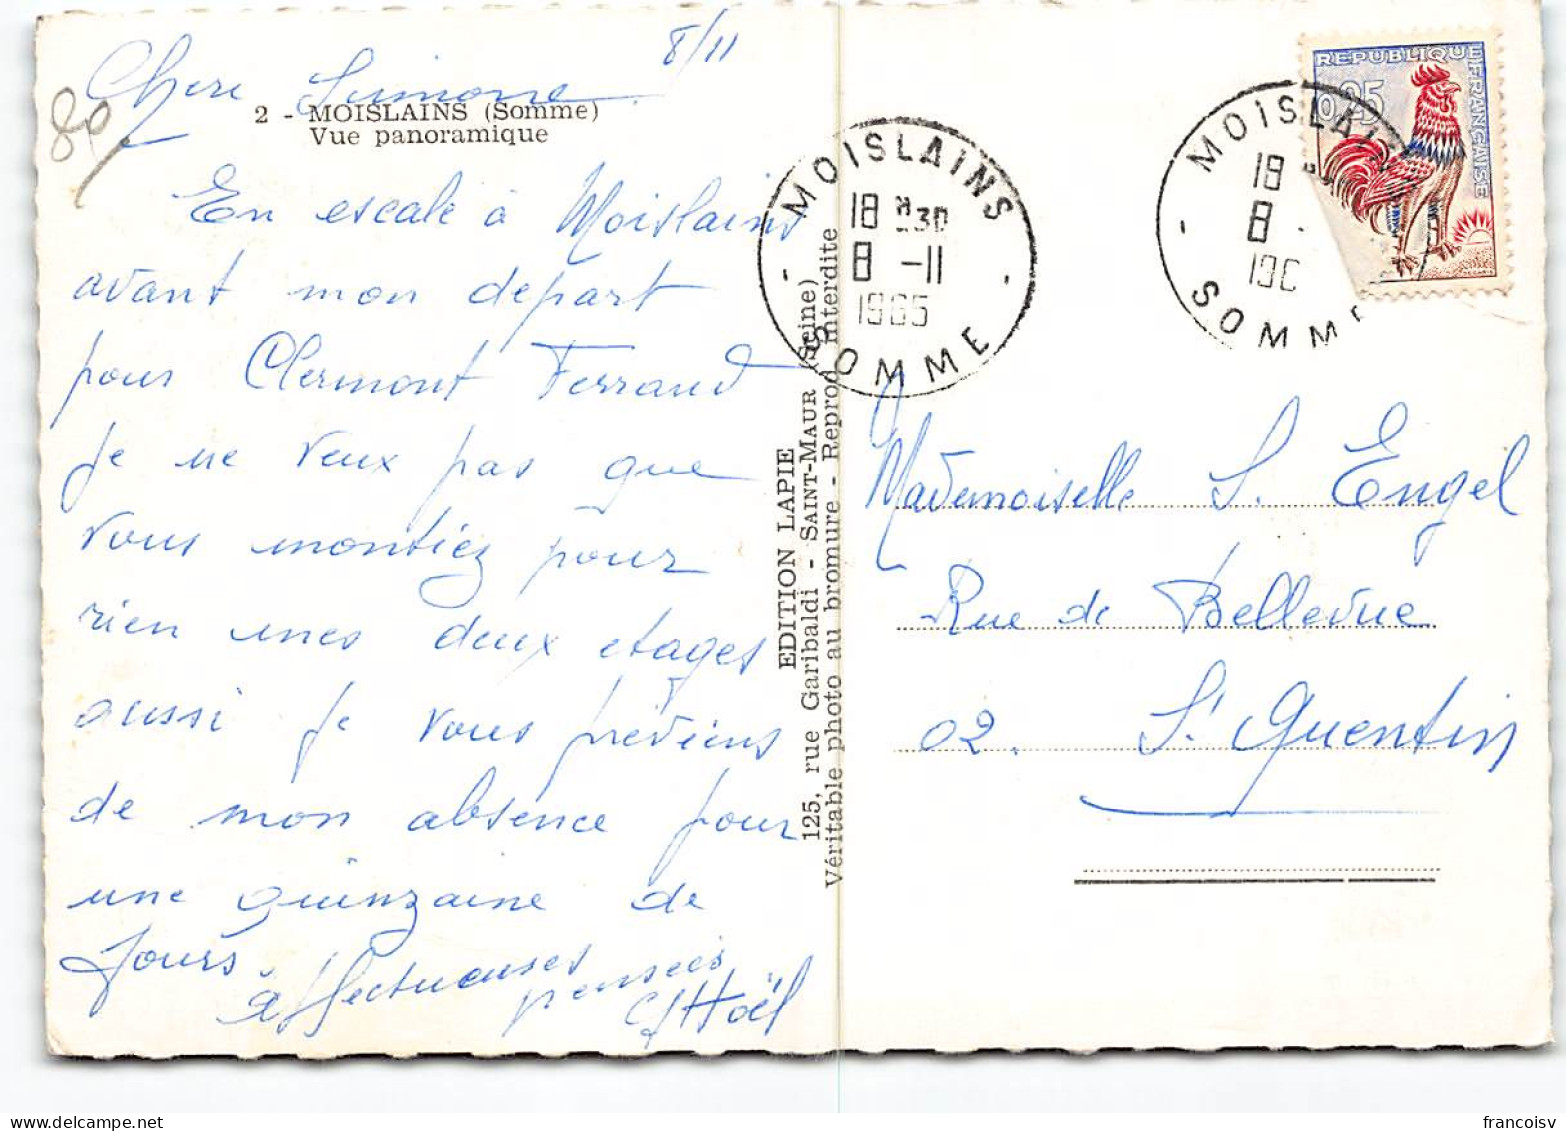 8/11
Chere Simone
2 - MOISLAINS (Somme)
Vue panoramique
80
En escale à Moislains
avant mon depart
pour Clermont Ferrand
je ne veux pas que
vous montiez pour
rien unes deux etages
aussi je vous préviens
de mon absence pour
une quinzaine de
jours.
affectueuses
pensées
Hoël
EDITION LAPIE
125, rue Garibaldi - SAINT-MAUR (Seine)
Véritable photo au bromure - Reprod. Interdite
MOISLAINS
18 H30
8 -11
1965
SOMME
MOISLAIN
18
8
196
SOMME
REPUBLIQUE FRANÇAISE
0,25
Mademoiselle S. Engel
Rue de Bellevue
02. St Quentin
francoisv